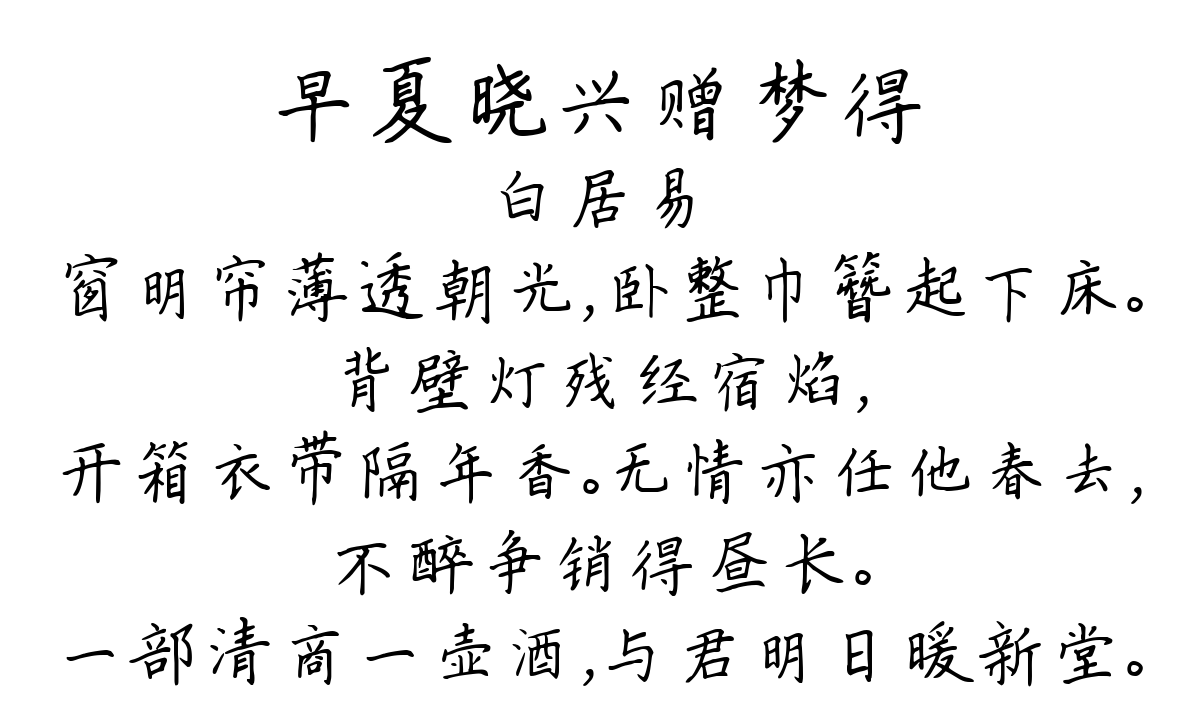 早夏晓兴赠梦得
白居易
窗明帘薄透朝光,卧整巾簪起下床。
背壁灯残经宿焰,
开箱衣带隔年香。无情亦任他春去,
不醉争销得昼长。
一部清商一壶酒,与君明日暖新堂。